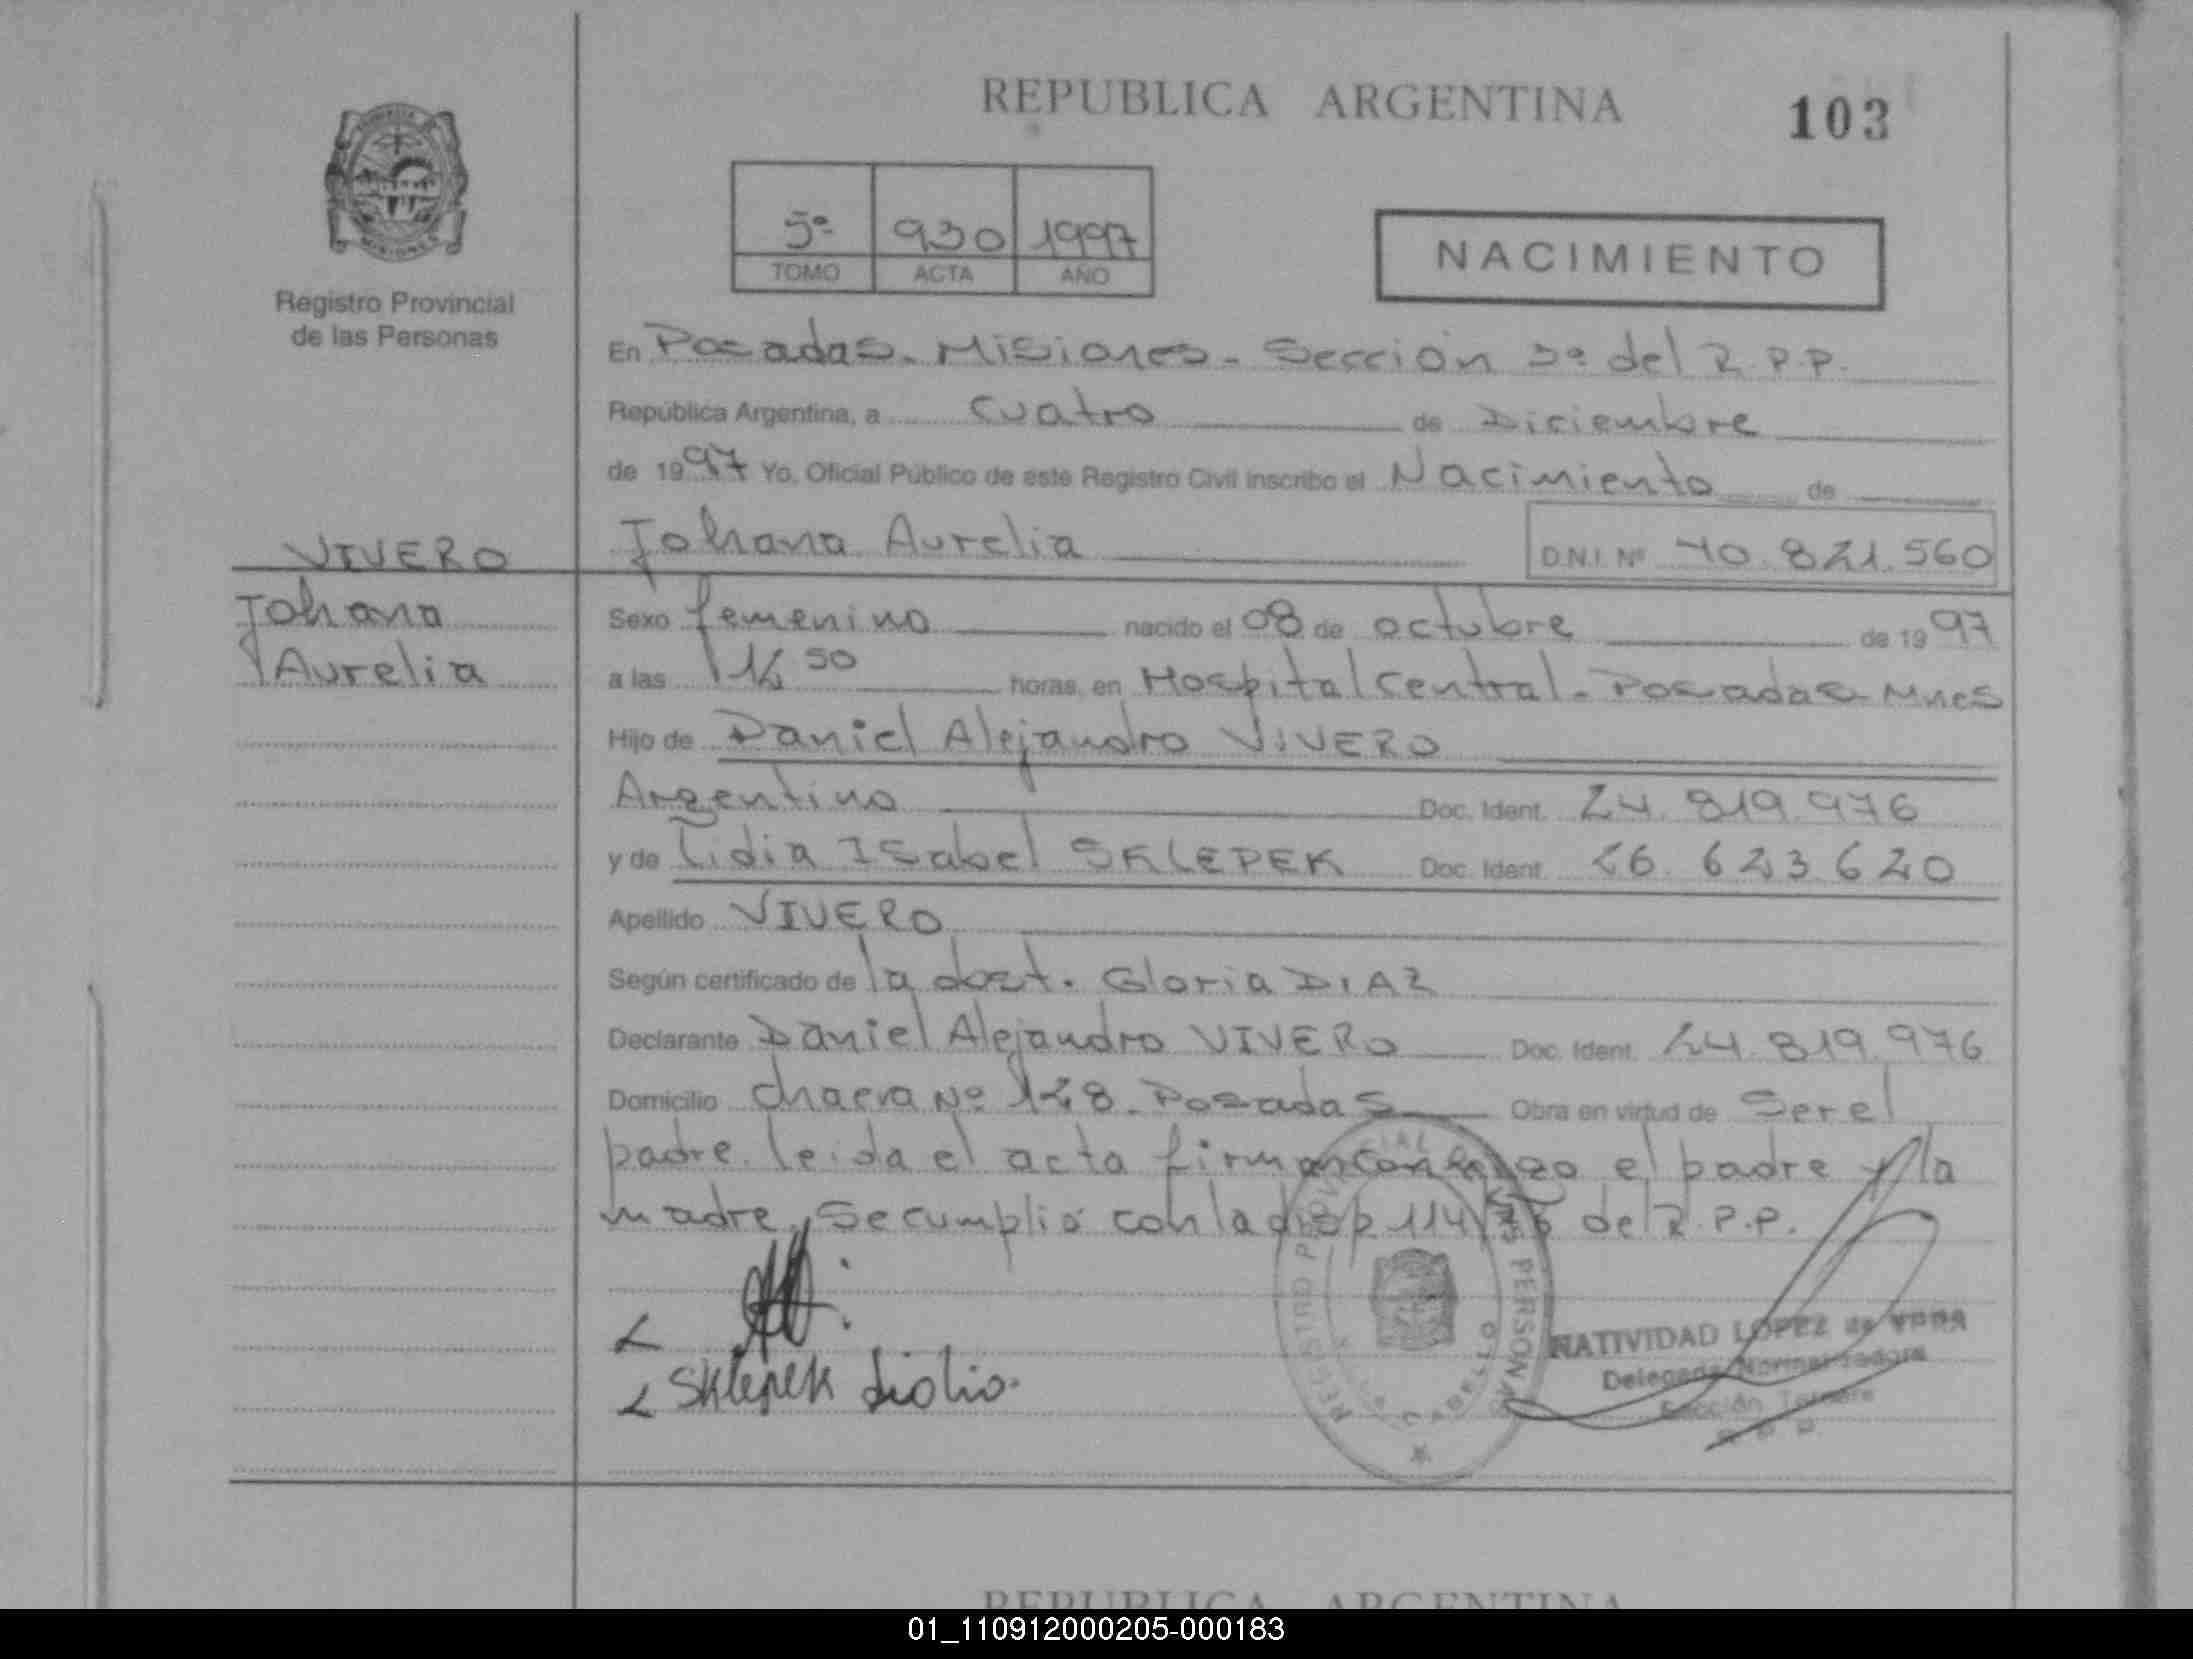 REPUBLICA ARGENTINA
103
5º 930 1997
TOMO ACTA AÑO
NACIMIENTO
MISIONES
Registro Provincial
de las Personas
En Posadas - Misiones - Sección 3º del R.P.P.
República Argentina, a cuatro de Diciembre
de 1997 Yo, Oficial Público de este Registro Civil inscribo el Nacimiento de
Johana Aurelia D.N.I. Nº 40.821.560
VIVERO
Johana
Aurelia
Sexo femenino nacido el 08 de octubre de 1997
a las 14 50 horas, en Hospital Central - Posadas - Mnes
Hijo de Daniel Alejandro VIVERO
Argentino Doc. Ident. 24.819.976
y de Lidia Isabel SKLEPEK Doc. Ident. 26.623.620
Apellido VIVERO
Según certificado de la obst. Gloria DIAZ
Declarante Daniel Alejandro VIVERO Doc. Ident. 24.819.976
Domicilio chacra Nº 128 - Posadas Obra en virtud de Ser el
padre. leida el acta firman conmigo el padre y la
madre, Se cumplió con la disp 114 de R.P.P.
Sklepek Lidia.
REGISTRO PROVINCIAL PERSONAS
NATIVIDAD LOPEZ de
Delegada Normalizadora
Sección Tercera
R P P
REPUBLICA ARGENTINA
01_110912000205-000183